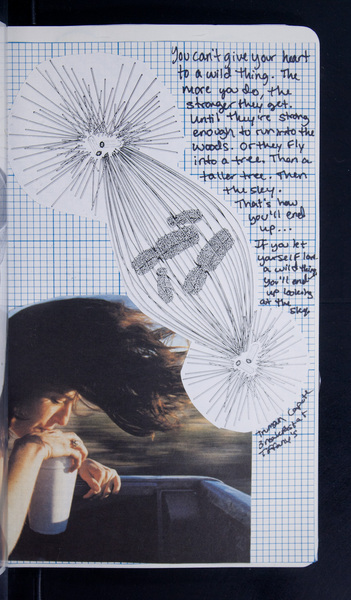 You can't give your heart
to a wild thing. The
more you do, the
stronger they get.
Until they're strong
enough to run into the
woods. Or they fly
into a tree. Then a
taller tree. Then
the sky.
That's how
you'll end
up...
If you let
yourself love
a wild thing
you'll end
up looking
at the
sky.
Truman Capote
Breakfast at
Tiffany's